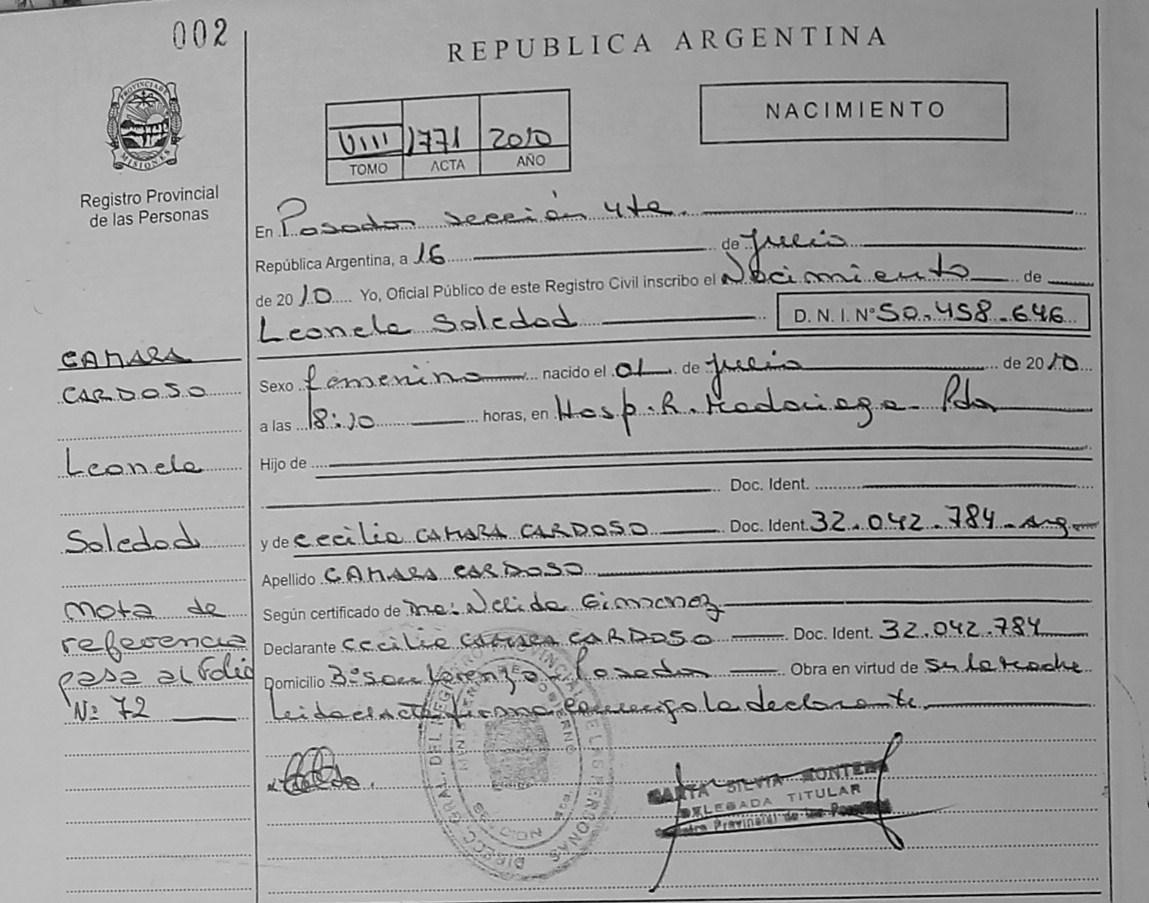 002
REPUBLICA ARGENTINA
NACIMIENTO
VIII 1771 2010
TOMO ACTA AÑO
PROVINCIA DE
MISIONES
Registro Provincial
de las Personas
En Posadas sección 4ta.
República Argentina, a 16 de Julio
de 2010 Yo, Oficial Público de este Registro Civil inscribo el Nacimiento de
Leonela Soledad D. N. I. Nº 50.458.646
CAMARA
CARDOSO
Leonela
Soledad
Nota de
referencia
pasa al folio
Nº 72
Sexo femenino nacido el 01 de Julio de 2010
a las 18:10 horas, en Hosp. R. Madariaga Pdas
Hijo de
Doc. Ident.
y de Cecilia CAMARA CARDOSO Doc. Ident. 32.042.784 Arg.
Apellido CAMARA CARDOSO
Según certificado de Nelida Gimenez
Declarante Cecilia CAMARA CARDOSO Doc. Ident. 32.042.784
Domicilio Bº San Lorenzo Posadas Obra en virtud de ser la Madre
leida el acta firma conmigo la declarante.
MARTA SILVIA MONTERO
DELEGADA TITULAR
Registro Provincial de las Personas